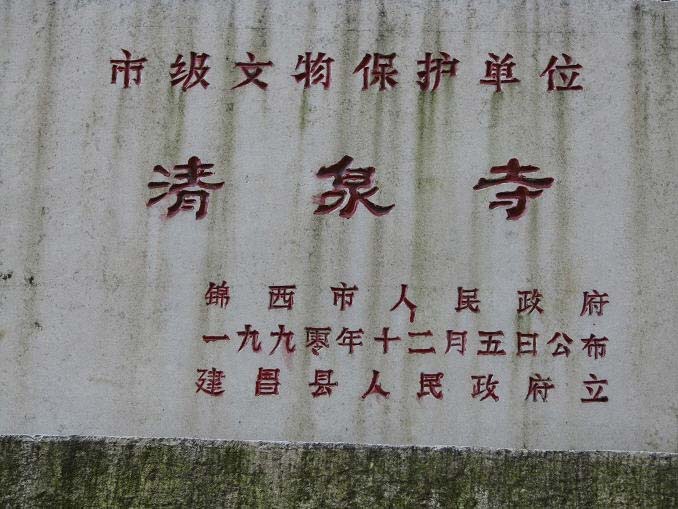 市级文物保护单位
清泉寺
锦西市人民政府
一九九零年十二月五日公布
建昌县人民政府立